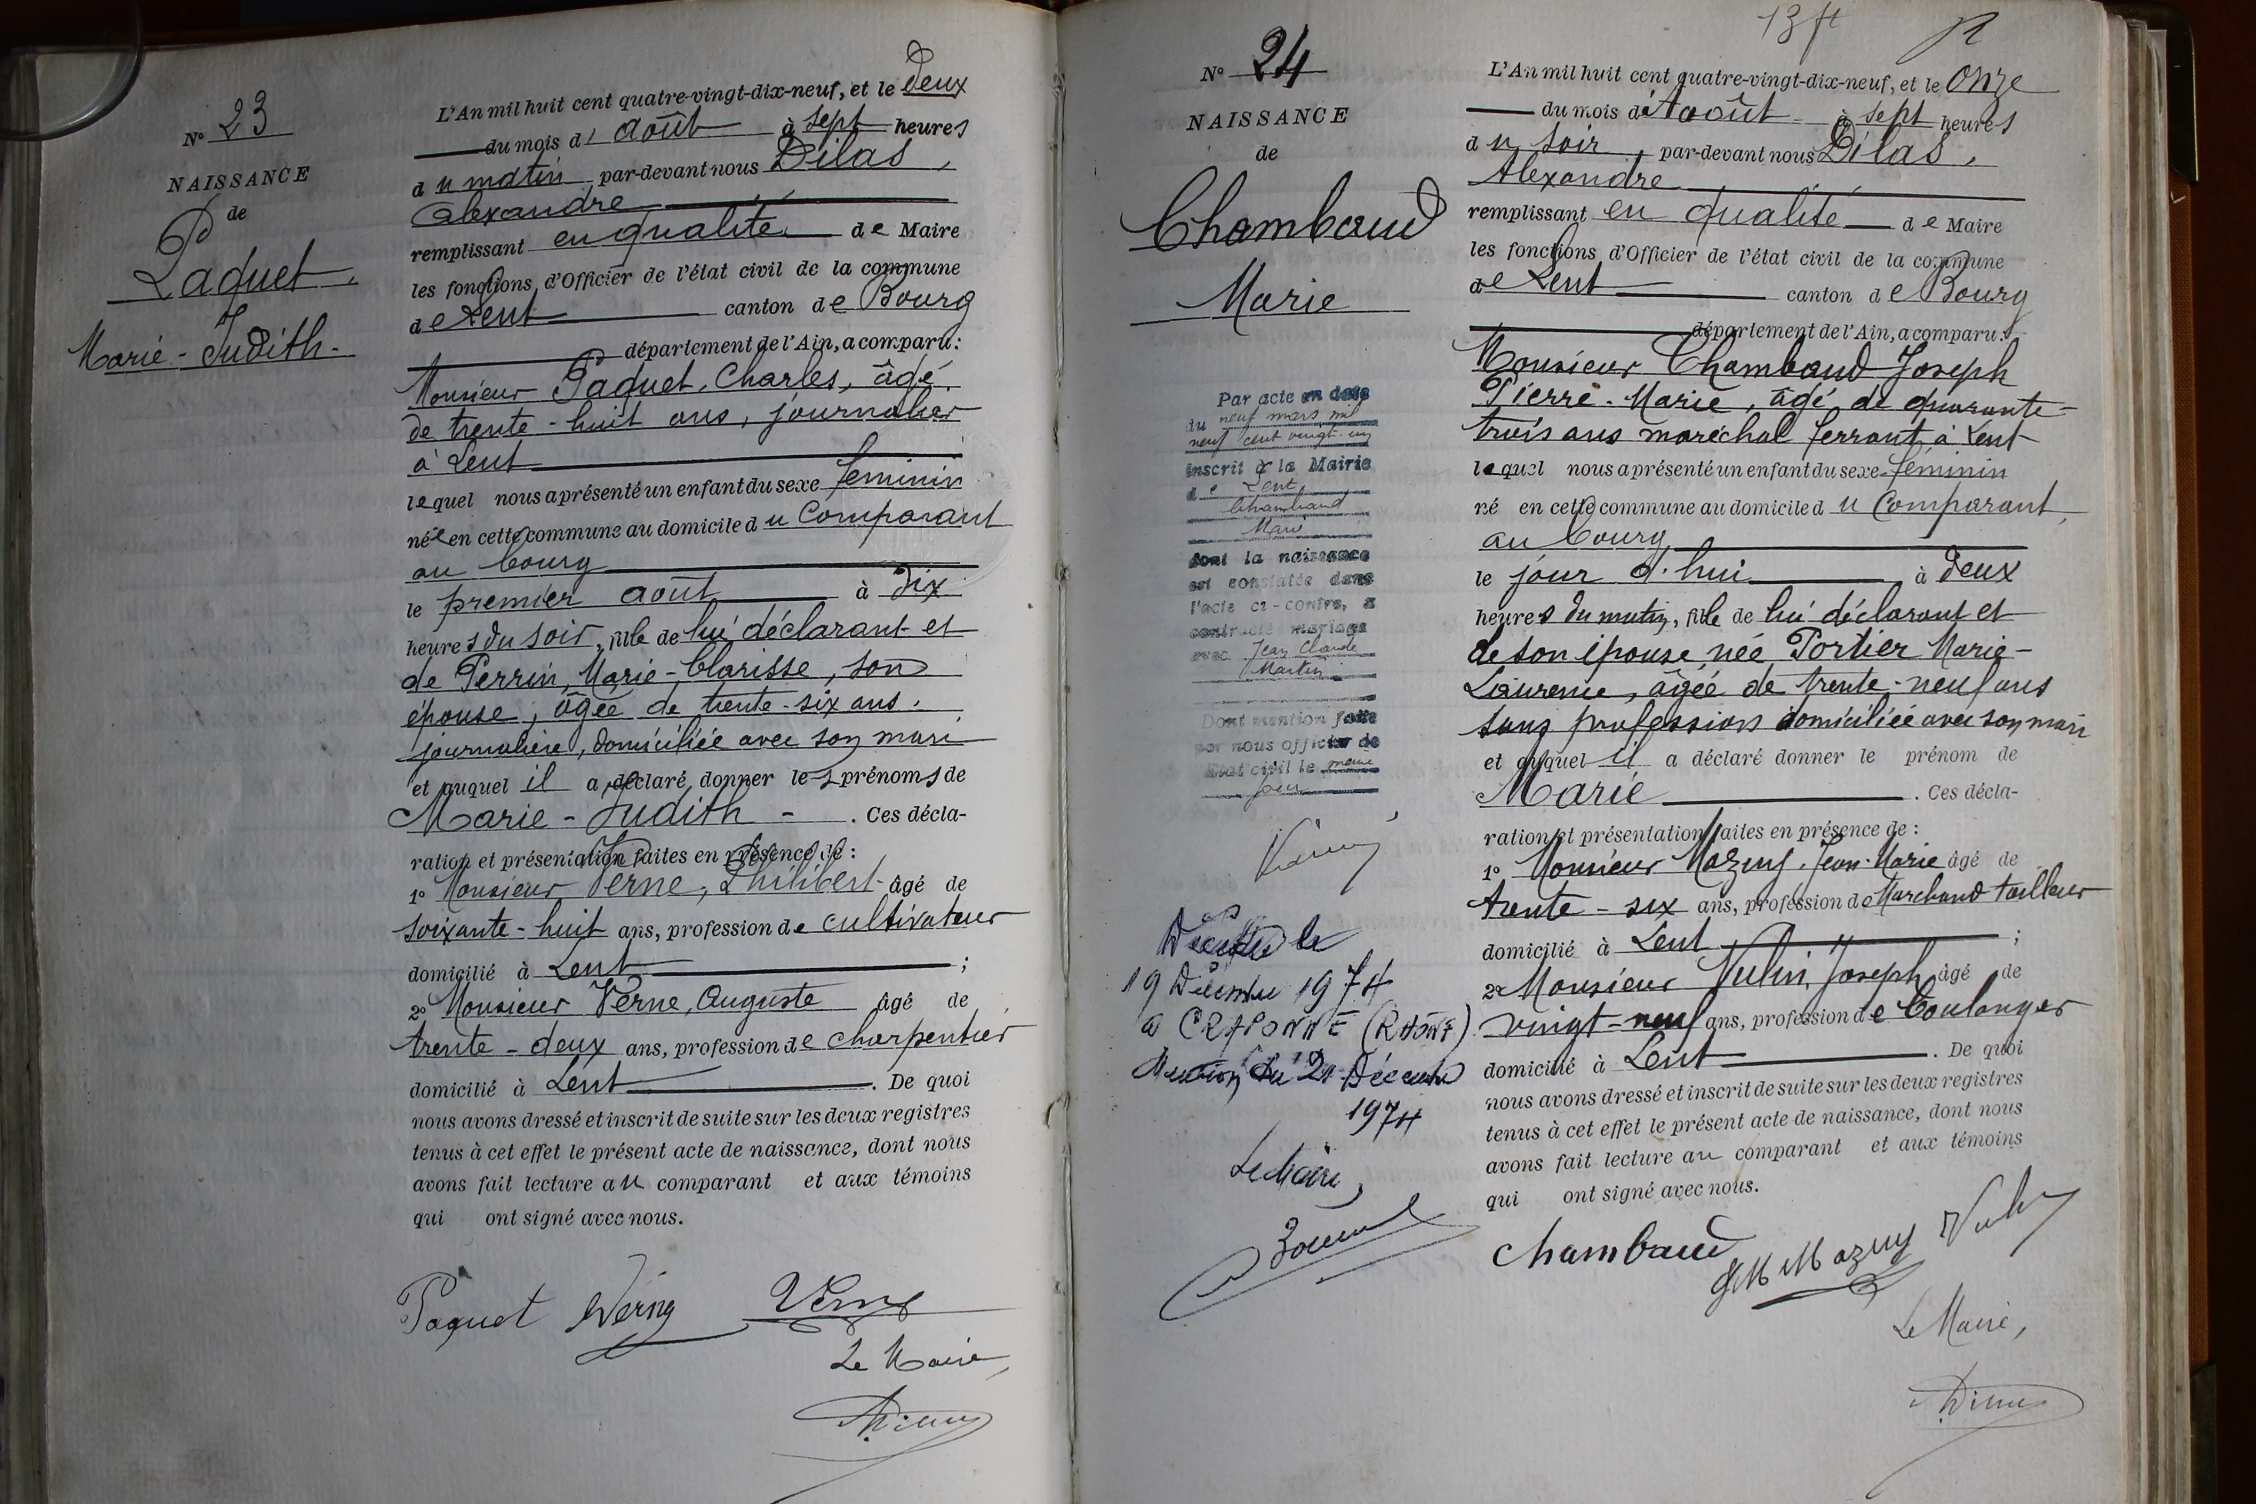 N° 23
NAISSANCE
de
Paquet
Marie - Judith -
L'An mil huit cent quatre-vingt-dix-neuf, et le Deux
du mois d' août à sept heures
du matin par-devant nous Dilas,
Alexandre
remplissant en qualité de Maire
les fonctions d'Officier de l'état civil de la commune
de Lent canton de Bourg
département de l'Ain, a comparu:
Monsieur Paquet, Charles, âgé
de trente-huit ans, journalier
à Lent
lequel nous a présenté un enfant du sexe féminin
née en cette commune au domicile du Comparant
au bourg
le premier août à dix
heures du soir, fille de lui déclarant et
de Perrin, Marie-Clarisse, son
épouse, âgée de trente-six ans.
journalière, domiciliée avec son mari
et auquel il a déclaré donner les prénoms de
Marie - Judith - . Ces décla-
ration et présentation faites en présence de :
1° Monsieur Verne, Philibert âgé de
soixante-huit ans, profession de cultivateur
domicilié à Lent ;
2° Monsieur Verne, Auguste âgé de
trente-deux ans, profession de charpentier
domicilié à Lent . De quoi
nous avons dressé et inscrit de suite sur les deux registres
tenus à cet effet le présent acte de naissance, dont nous
avons fait lecture au comparant et aux témoins
qui ont signé avec nous.
Paquet Verne Verne
Le Maire,
13 ft
N° 24
NAISSANCE
de
Chambaud
Marie
Par acte en date
du neuf mars mil
neuf cent vingt-un
inscrit à la Mairie
de Lent,
Chambaud
Marie
dont la naissance
est constatée dans
l'acte ci-contre, a
contracté mariage
avec Jean Claude
Martin
Dont mention faite
par nous officier de
Etat civil le même
jour
Décédée le
19 Décembre 1974
à CRAPONNE (RHÔNE)
Mention du 21 Décembre
1974
Le Maire,
L'An mil huit cent quatre-vingt-dix-neuf, et le Onze
du mois d'Août à sept heures
du soir, par-devant nous Dilas,
Alexandre
remplissant en qualité de Maire
les fonctions d'Officier de l'état civil de la commune
de Lent canton de Bourg
département de l'Ain, a comparu:
Monsieur Chambaud Joseph
Pierre-Marie, âgé de quarante-
trois ans maréchal ferrant à Lent
lequel nous a présenté un enfant du sexe féminin
né en cette commune au domicile du Comparant,
au bourg
le jour d'hui à deux
heures du matin, fille de lui déclarant et
de son épouse née Portier Marie-
Laurence, âgée de trente-neuf ans
sans profession domiciliée avec son mari
et auquel il a déclaré donner le prénom de
Marie . Ces décla-
ration et présentation faites en présence de :
1° Monsieur Mazuy, Jean-Marie âgé de
trente-six ans, profession de Marchand tailleur
domicilié à Lent ;
2° Monsieur Vulin, Joseph âgé de
vingt-neuf ans, profession de boulanger
domicilié à Lent . De quoi
nous avons dressé et inscrit de suite sur les deux registres
tenus à cet effet le présent acte de naissance, dont nous
avons fait lecture au comparant et aux témoins
qui ont signé avec nous.
Chambaud JM Mazuy Vulin
Le Maire,